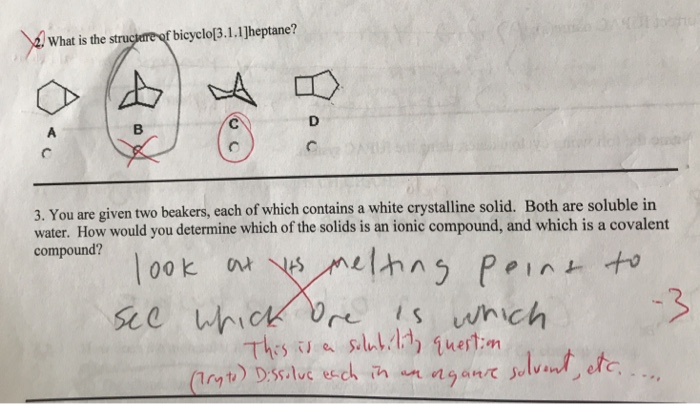 2. What is the structure of bicyclo[3.1.1]heptane?
A B C D
3. You are given two beakers, each of which contains a white crystalline solid. Both are soluble in
water. How would you determine which of the solids is an ionic compound, and which is a covalent
compound?
look at its melting point to
see which one is which
-3
This is a solubility question
(Try to) Dissolve each in an organic solvent, etc. ....